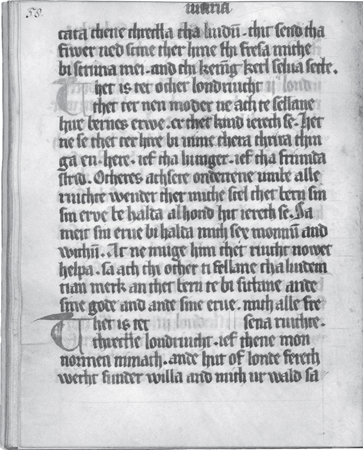 59.
cata thene threkka tha liudū. thir send tha
fiwer ned sine ther hine thi fresa mithe
bi scriua mei. and thi kening kerl selua sette.
Thet is tet other londriucht
thet ter nen moder ne ach te sellane
hire bernes erwe. er thet kind ierech se. Het
ne se thet ter hire bi nime thera thrira thin
ga en. here. ief tha hunger. ief tha strinda
strid. Otheres achsere ondertene umbe alle
riuchte wender ther muche stel thet bern sin
sin erve be halta al hond hit ierech se. Sa
meir sin erue bi halta mith sex monnū and
withū. Ar ne muge him thet riucht nower
helpa. sa ach thi other ti fellane tha liudem
tian merk an thet bern te bi sittane ande
sine gode and ande sine erue. mith alle fre
Thet is tet sena riuchte.
threthe londriucht. ief thene mon
normen nimath. ande hiut of londe fereth
wecht sunder willa and mith ur wald sa